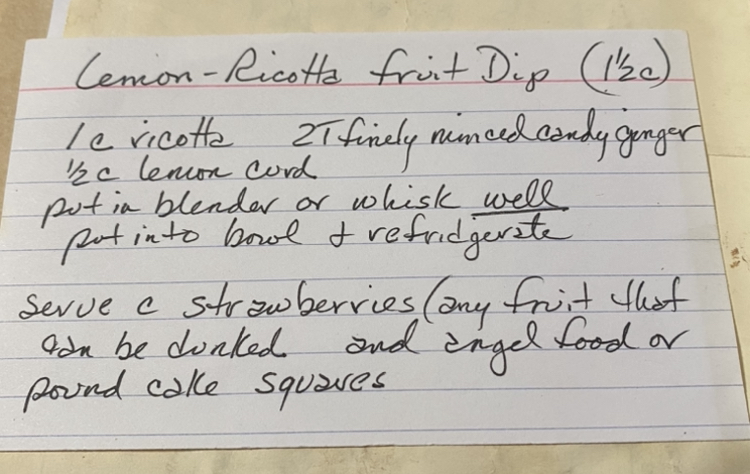 Lemon-Ricotta fruit Dip (1½c)
1c ricotta 2T finely minced candy ginger
½ c lemon curd
put in blender or whisk well
put into bowl & refridgerate
serve c strawberries (any fruit that
can be dunked and angel food or
pound cake squares